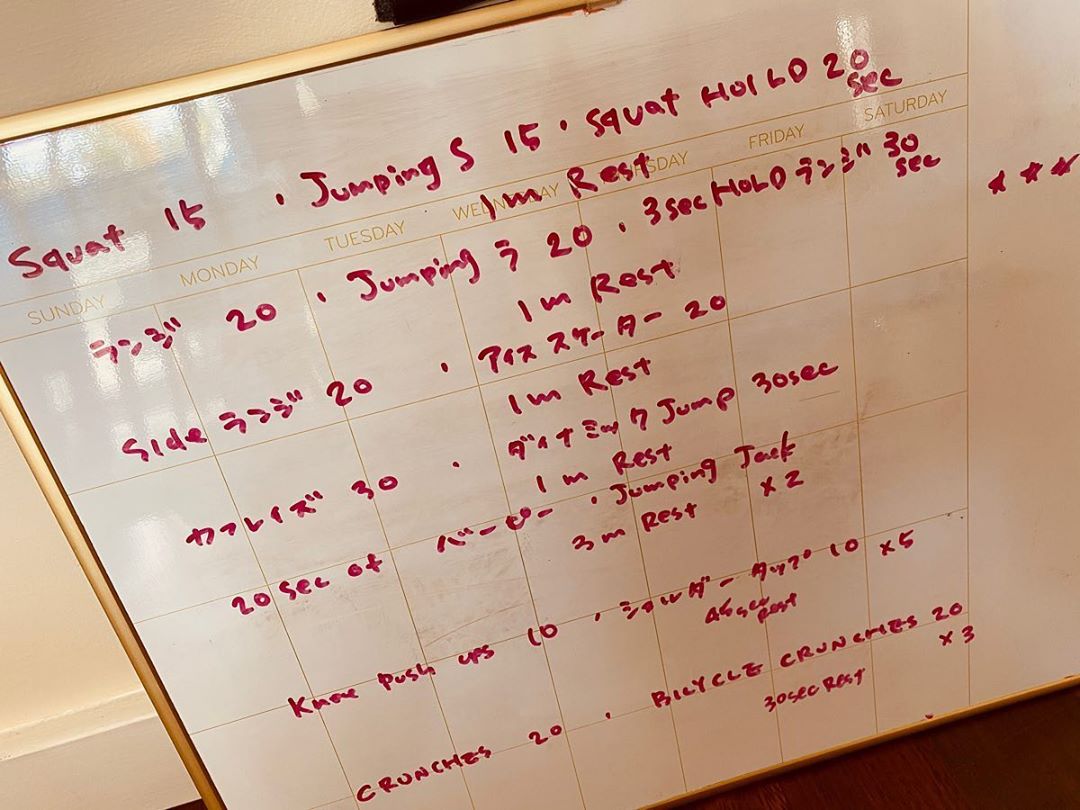 Squat 15 ・ Jumping S 15 ・ squat HOLD 20 sec
SUNDAY MONDAY TUESDAY WEDNESDAY FRIDAY SATURDAY
1m Rest
ランジ 20 ・ Jumping ラ 20 ・ 3sec HOLD ランジ 30 sec
1m Rest
Side ランジ 20 ・ アイススケーター 20
1m Rest
カフレイズ 30 ・ ダイナミック Jump 30sec
1m Rest
20 sec of バーピー ・ Jumping Jack
3m Rest x2
Knee Push ups 10 ・ ショルダータップ 10 x5
45 sec Rest
CRUNCHES 20 ・ BICYCLE CRUNCHES 20
x3
30sec Rest